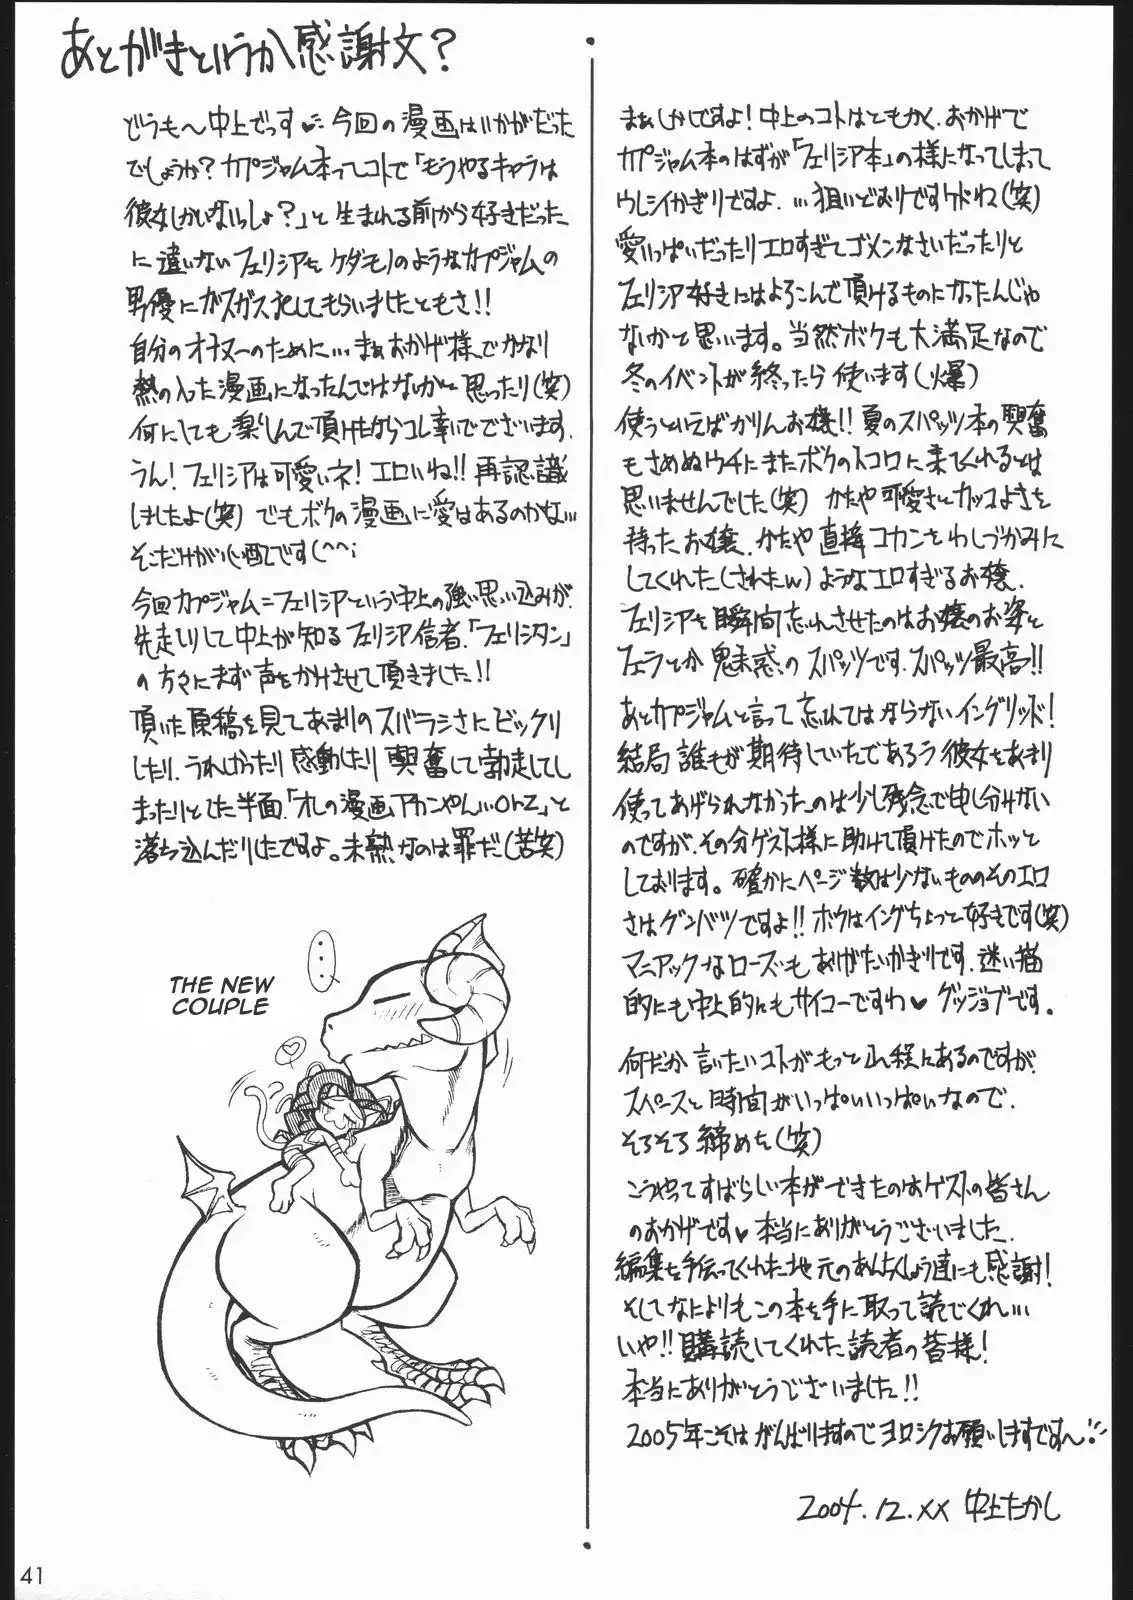 あとがきというか感謝文?
どうも〜中上でっす♥今回の漫画はいかがだった
でしょうか?カプジャム本ってコトで「もうやるキャラは
彼女しかいないっしょ?」と生まれる前から好きだった
に違いないフェリシアをケダモノのようなカプジャムの
男優にガスガス犯してもらいましたともさ!!
自分のオナヌーのために…まぁおかげ様でかなり
熱の入った漫画になったんではないかと思ったり(笑)
何にしても楽しんで頂けたならコレ幸いでございます.
うん!フェリシアは可愛いネ!エロいね!!再認識
しましたよ(笑)でもボクの漫画に愛はあるのかな…
そこだけが心配です(^^;
今回カプジャム=フェリシアという中上の強い思い込みが.
先走りして中上が知るフェリシア信者.「フェリシタン」
の方々にまず声をかけさせて頂きました!!
頂いた原稿を見てあまりのスバラシさにビックリ
したり.うれしかったり感動したり興奮して勃走してし
まったりとした半面.「オレの漫画アカンやん…orz」と
落ち込んだりしたですよ。未熟なのは罪だ(苦笑)
THE NEW
COUPLE
まぁしかしですよ!中上のコトはともかく.おかげで
カプジャム本のはずが「フェリシア本」の様になってしまって
ウレシイかぎりですよ.…狙いどおりですケドね(笑)
愛いっぱいだったりエロすぎてゴメンなさいだったりと
フェリシア好きにはよろこんで頂けるものになったんじゃ
ないかと思います。当然ボクも大満足なので
冬のイベントが終ったら使います(爆)
使うといえばかりんお嬢!!夏のスパッツ本の興奮
もさめぬウチにまたボクのトコロに来てくれるとは
思いませんでした(笑)かたや可愛さとカッコよさを
持ったお嬢.かたや直接コカンをわしづかみに
してくれた(されたw)ようなエロすぎるお嬢.
フェリシアを瞬間忘れさせたのはお嬢のお姿と
フェラとか魅惑のスパッツです.スパッツ最高!!
あとカプジャムと言って忘れてはならないイングリッド!
結局誰もが期待していたであろう彼女をあまり
使ってあげられなかったのは少し残念で申し分けない
のですが.その分ゲスト様に助けて頂けたのでホッと
しております。確かにページ数は少ないもののそのエロ
さはグンバツですよ!!ボクはイングちょっと好きです(笑)
マニアックなローズもありがたいかぎりです.迷い猫
的にも中上的にもサイコーですわ♥グッジョブです。
何だか言いたいコトがもっと山程にあるのですが.
スペースと時間がいっぱいいっぱいなので.
そろそろ締めを(笑)
こうやってすばらしい本ができたのはゲストの皆さん
のおかげです♥本当にありがとうございました.
編集を手伝ってくれた地元のあんちくしょう達にも感謝!
そしてなによりもこの本を手に取って読でくれ…
いや!!購読してくれた読者の皆様!
本当にありがとうございました!!
2005年こそはがんばりますのでヨロシクお願いしますです〜!!
2004.12.XX 中上たかし
41